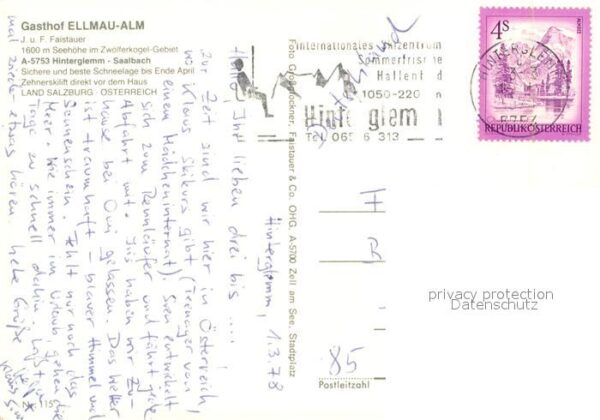 Gasthof ELLMAU-ALM
J. u. F. Faistauer
1600 m Seehöhe im Zwölferkogel-Gebiet
A-5753 Hinterglemm - Saalbach
Sichere und beste Schneelage bis Ende April
Zehnerskilift direkt vor dem Haus
LAND SALZBURG ÖSTERREICH
Hinterglemm, 1.3.78
Hallo, Ihr lieben drei bis ....
Zur Zeit sind wir hier in Österreich,
wo Klaus Skikurs gibt (Teenager von
einem Mädcheninternat). Sven entwickelt
sich zum Rennläufer und fährt jede
Abfahrt mit. Jus haben wir Zu-
hause bei Omi gelassen. Das Wetter
ist traumhaft - blauer Himmel und
Sonnenschein. Fehlt nur noch das
Meer. Wie immer im Urlaub, gehen die
Tage zu schnell dahin. Laßt
mal was etwas hören. Liebe Grüße
Klaus
Foto Grossglockner, Faistauer & Co. OHG. A5700 Zell am See, Stadtplatz
Internationales Skizentrum
Sommerfrische
Hallenbad
1050-220 m
Hinterglemm
Tel. 06 313
HINTERGLEMM
5754
4S
REPUBLIK ÖSTERREICH
Deutschland
H
Fr
85
Postleitzahl
privacy protection
Datenschutz